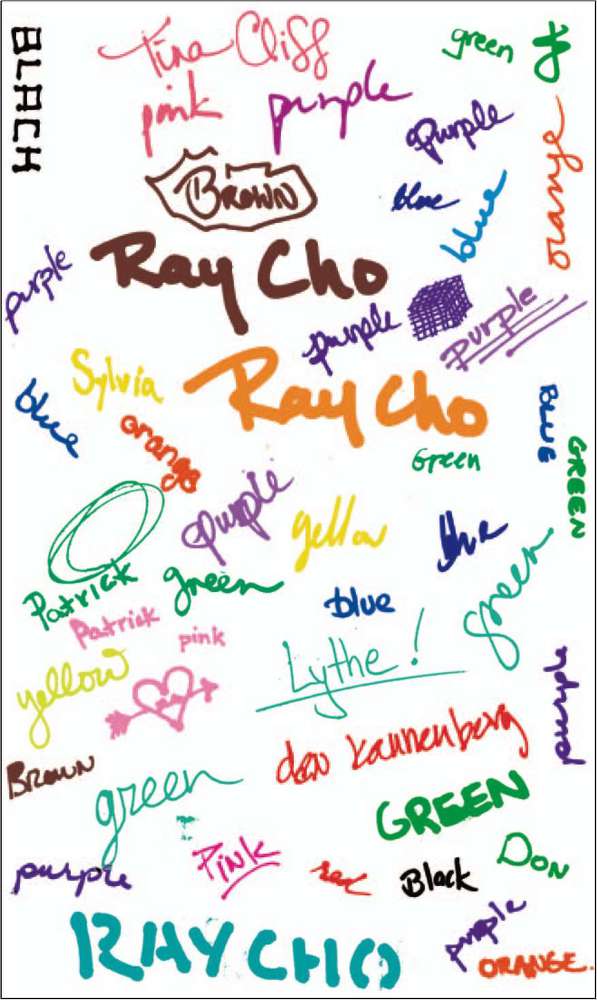 BLACK
Tina Cliff
green
pink
purple
purple
orange
Brown
blue
blue
Ray Cho
purple
purple
purple
Sylvia
Ray Cho
blue
orange
BLUE
Green
GREEN
purple
yellow
blue
green
Patrick
green
blue
Patrick
pink
Lythe!
yellow
purple
don kannenberg
Brown
green
GREEN
Pink
red
Black
Don
purple
purple
RAY CHO
ORANGE.